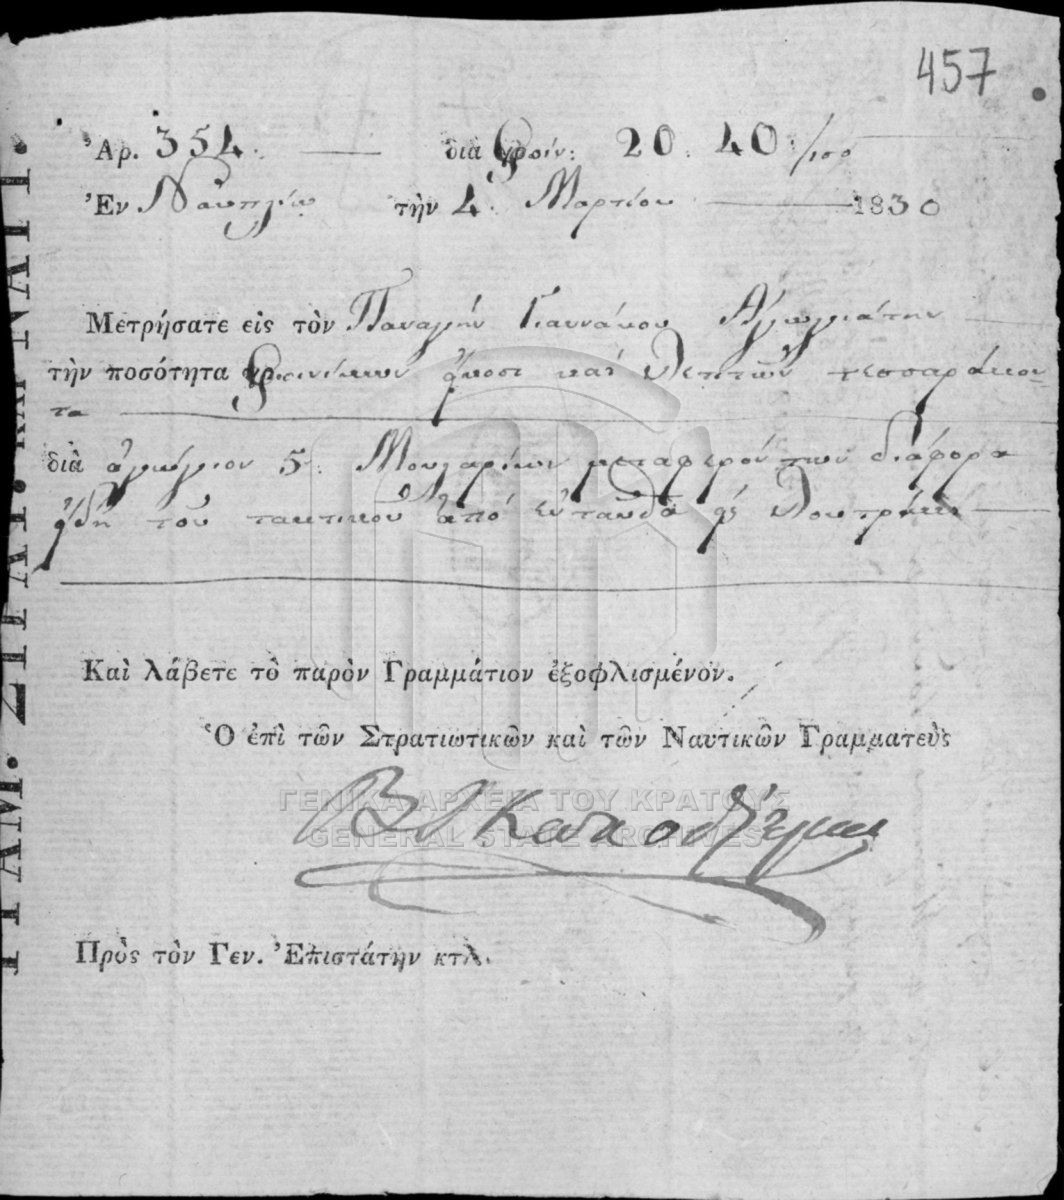 457
Ἀρ. 354. διὰ Φοίν: 20: 40:/100
Ἐν Ναυπλίῳ τὴν 4 Μαρτίου 1830
Μετρήσατε εἰς τὸν Παναγήν Γιαννάκου Ἀγωγιάτην
τὴν ποσότητα Φοινίκων εἴκοσι καὶ λεπτῶν τεσσαράκον-
τα
διὰ ἀγώγιον 5: Μουλαρίων μεταφερόντων διάφορα
εἴδη τοῦ τακτικοῦ ἀπό ἐνταῦθα εἰς Λουτράκι
Καὶ λάβετε τὸ παρὸν Γραμμάτιον ἐξοφλισμένον.
Ὁ ἐπὶ τῶν Στρατιωτικῶν καὶ τῶν Ναυτικῶν Γραμματεὺς
ΓΕΝΙΚΑ ΑΡΧΕΙΑ ΤΟΥ ΚΡΑΤΟΥΣ
GENERAL STATE ARCHIVES
Πρὸς τὸν Γεν. Ἐπιστάτην κτλ.
ΓΡΑΜ. ΣΤΡΑΤ. ΚΑΙ ΝΑΥΤ.